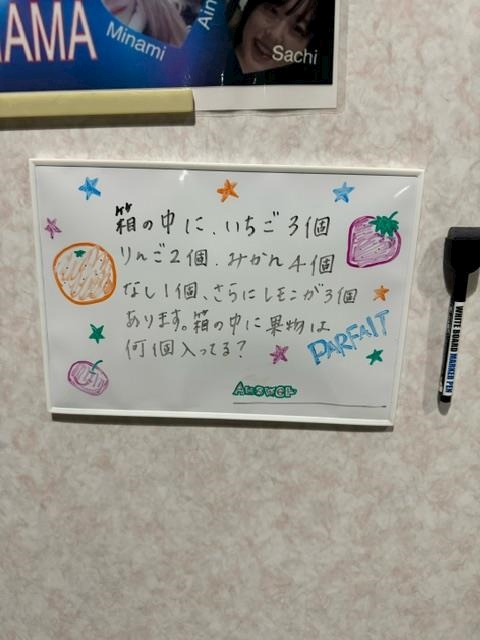 AMA
Minami
Ain
Sachi
箱の中に、いちご3個
りんご2個、みかん4個
なし1個、さらにレモンが3個
あります。箱の中に果物は
何個入ってる?
PARFAIT
Answer
WHITE BOARD MARKER PEN